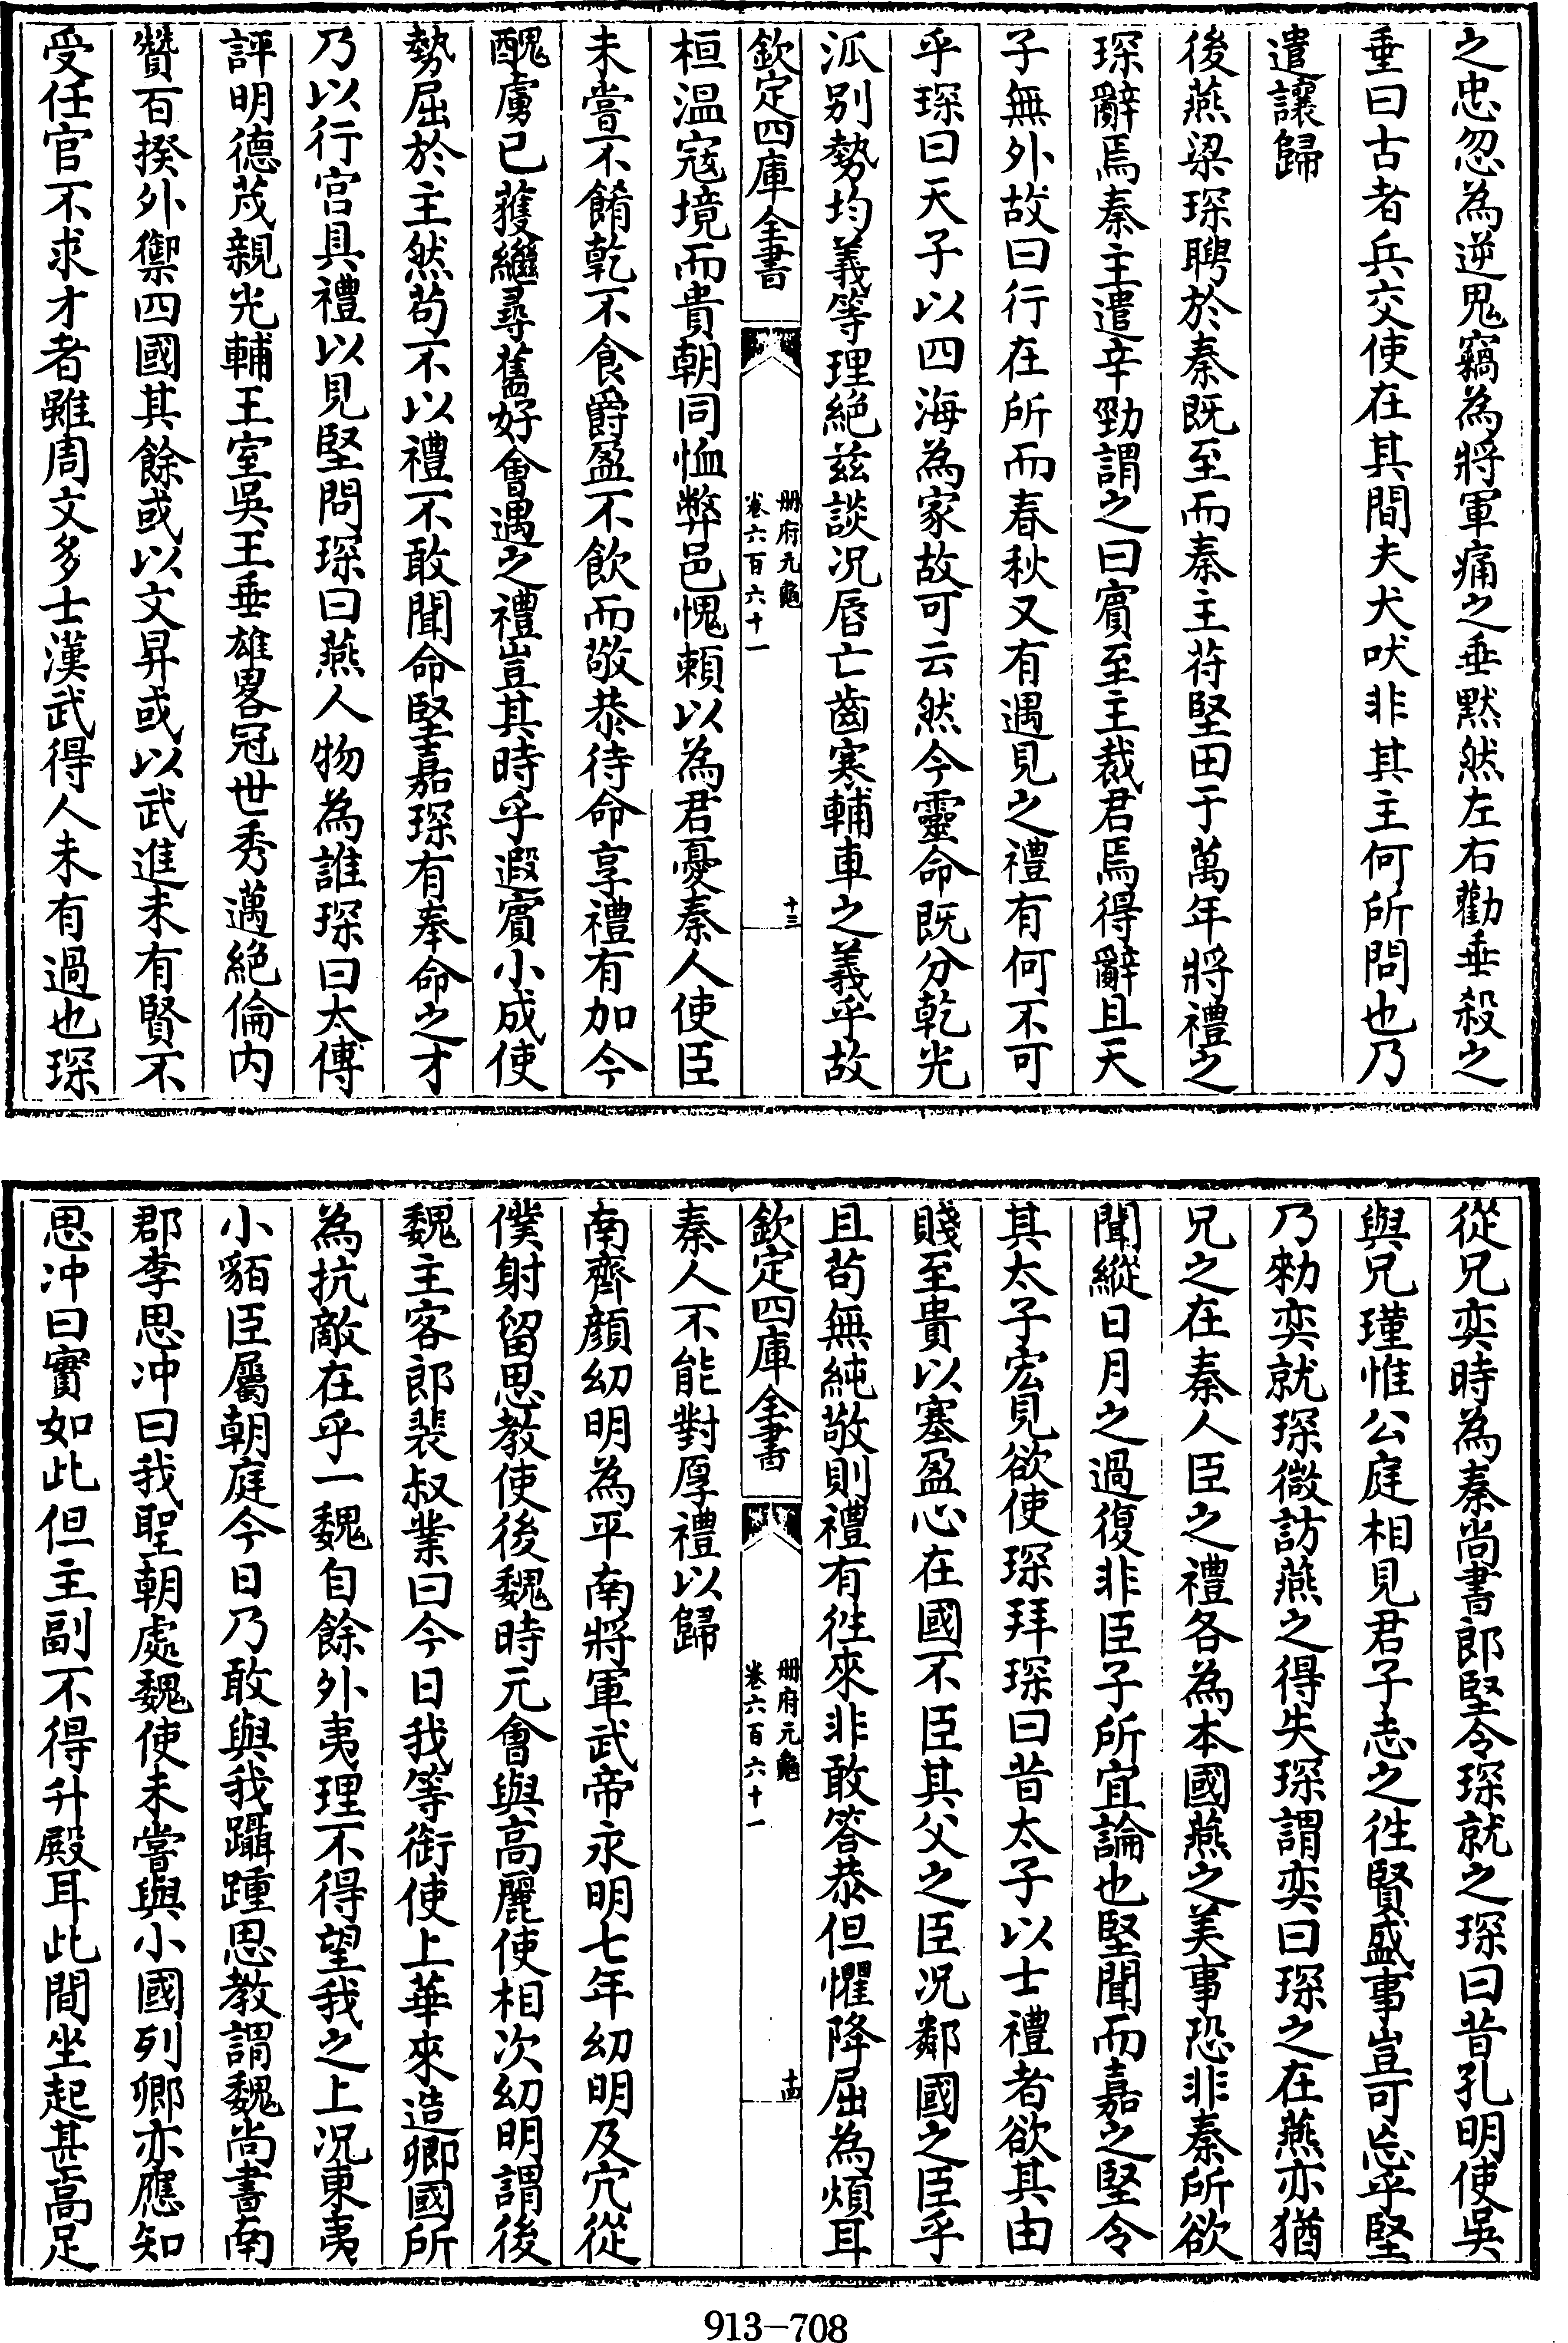 之忠忽為逆鬼竊為將軍痛之垂黙然左右勸垂殺之
垂曰古者兵交使在其間夫犬吠非其主何所問也乃
遣讓歸
後燕梁琛聘於秦既至而秦主苻堅田于萬年將禮之
琛辭焉秦主遣辛勁謂之曰賓至主裁君焉得辭且天
子無外故曰行在所而春秋又有遇見之禮有何不可
乎琛曰天子以四海為家故可云然今靈命既分乾光
泒别勢均義等理絶兹談况唇亡齒寒輔車之義乎故
欽定四庫全書
册府元龜
卷六百六十一
十三
桓温寇境而貴朝同恤弊邑愧頼以為君憂秦人使臣
未嘗不餚乾不食爵盈不飲而敬恭待命享禮有加今
醜虜已蒦繼尋舊好會遇之禮豈其時乎遐賓小成使
勢屈於主然苟不以禮不敢聞命堅嘉琛有奉命之才
乃以行宫具禮以見堅問琛曰燕人物為誰琛曰太傅
評明德茂親光輔王室吳王垂雄畧冠世秀邁絶倫内
贊百揆外禦四國其餘或以文昇或以武進未有賢不
受任官不求才者雖周文多士漢武得人未有過也琛
從兄奕時為秦尚書郎堅令琛就之琛曰昔孔明使吳
與兄瑾惟公庭相見君子志之徃賢盛事豈可忘乎堅
乃勑奕就琛微訪燕之得失琛謂奕曰琛之在燕亦猶
兄之在秦人臣之禮各為本國燕之美事恐非秦所欲
聞縱日月之過復非臣子所宜論也堅聞而嘉之堅令
其太子宏見欲使琛拜琛曰昔太子以士禮者欲其由
賤至貴以塞盈心在國不臣其父之臣况鄰國之臣乎
且苟無純敬則禮有徃來非敢答恭但懼降屈為煩耳
欽定四庫全書
册府元龜
卷六百六十一
十四
秦人不能對厚禮以歸
南齊顔幼明為平南將軍武帝永明七年幼明及宂從
僕射留思教使後魏時元會與高麗使相次幼明謂後
魏主客郎裴叔業曰今日我等銜使上華來造卿國所
為抗敵在乎一魏自餘外夷理不得望我之上况東夷
小貊臣屬朝庭今日乃敢與我躡踵思教謂魏尚書南
郡李思冲曰我聖朝處魏使未嘗與小國列卿亦應知
思冲曰實如此但主副不得升殿耳此間坐起甚高足
913-708